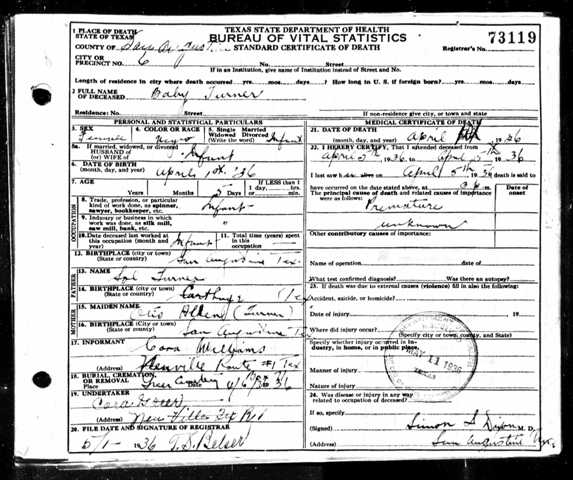 TEXAS STATE DEPARTMENT OF HEALTH
BUREAU OF VITAL STATISTICS
STANDARD CERTIFICATE OF DEATH
73119
Registrar's No.
1 PLACE OF DEATH
STATE OF TEXAS
COUNTY OF San Augustine
CITY OR PRECINCT NO. 6 No. Street
If in Institution, give name of Institution instead of Street and No.
Length of residence in city where death occurred yrs. mos. days? How long in U. S. if foreign born? yrs. mos. days
2 FULL NAME OF DECEASED Baby Turner
Residence: No. Street
If non-residence give city, or town and county
PERSONAL AND STATISTICAL PARTICULARS
3. SEX Female
4. COLOR OR RACE Negro
5. Single Married Widowed Divorced (Write the word) Infant
5a. If married, widowed, or divorced HUSBAND OF (or) WIFE OF Infant
6. DATE OF BIRTH (month, day, and year) April 1st, '36
7. AGE Years Months 5 Days If LESS than 1 day, hrs. Min.
OCCUPATION
8. Trade, profession, or particular kind of work done, as spinner, sawyer, bookkeeper, etc. Infant
9. Industry or business in which work was done, as silk mill, saw mill, bank, etc. "
10. Date deceased last worked at this occupation (month and year) Infant
11. Total time (years) spent in this occupation
12. BIRTHPLACE (city or town) (State or country) San Augustine Tex.
FATHER
13. NAME Sol Turner
14. BIRTHPLACE (City or town) (State or country) Carthage (Tex
MOTHER
15. MAIDEN NAME Allen (Turner)
16. BIRTHPLACE (City or town) (State or country) San Augustine Tex
17. INFORMANT Cora Williams
(Address) Route #1 Tex
18. BURIAL, CREMATION, OR REMOVAL
Place Date 4/6 36
19. UNDERTAKER Cora
(Address)
20. FILE DATE AND SIGNATURE OF REGISTRAR
5/1- 1936 T. S. Belser
MEDICAL CERTIFICATE OF DEATH
21. DATE OF DEATH (month, day, and year) April 1936
22. I HEREBY CERTIFY, That I attended deceased from April 5th 1936 to April 5th 1936
I last saw h alive on April 5th 1936 death is said to have occurred on the date stated above, at m.
The principal cause of death and related causes of importance were as follows:
Date of onset
Premature
unknown
Other contributory causes of importance:
Name of operation Date of
What test confirmed diagnosis? Was there an autopsy?
23. If death was due to external causes (violence) fill in also the following:
Accident, suicide, or homicide?
Date of injury 19
Where did injury occur?
(Specify city or town, county, and State)
Specify whether injury occurred in Industry, in home, or in public place.
MAY 11 1936
TEXAS
Manner of injury
Nature of injury
24. Was disease or injury in any way related to occupation of deceased?
If so, specify
(Signed) Simon S Dixon M. D.
(Address) San Augustine Tex.